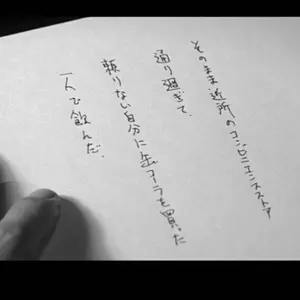 そのまま近所のコンビニエンスストア
通り過ぎて、
頼りない自分に缶コーラを買った
一人で飲んだ。